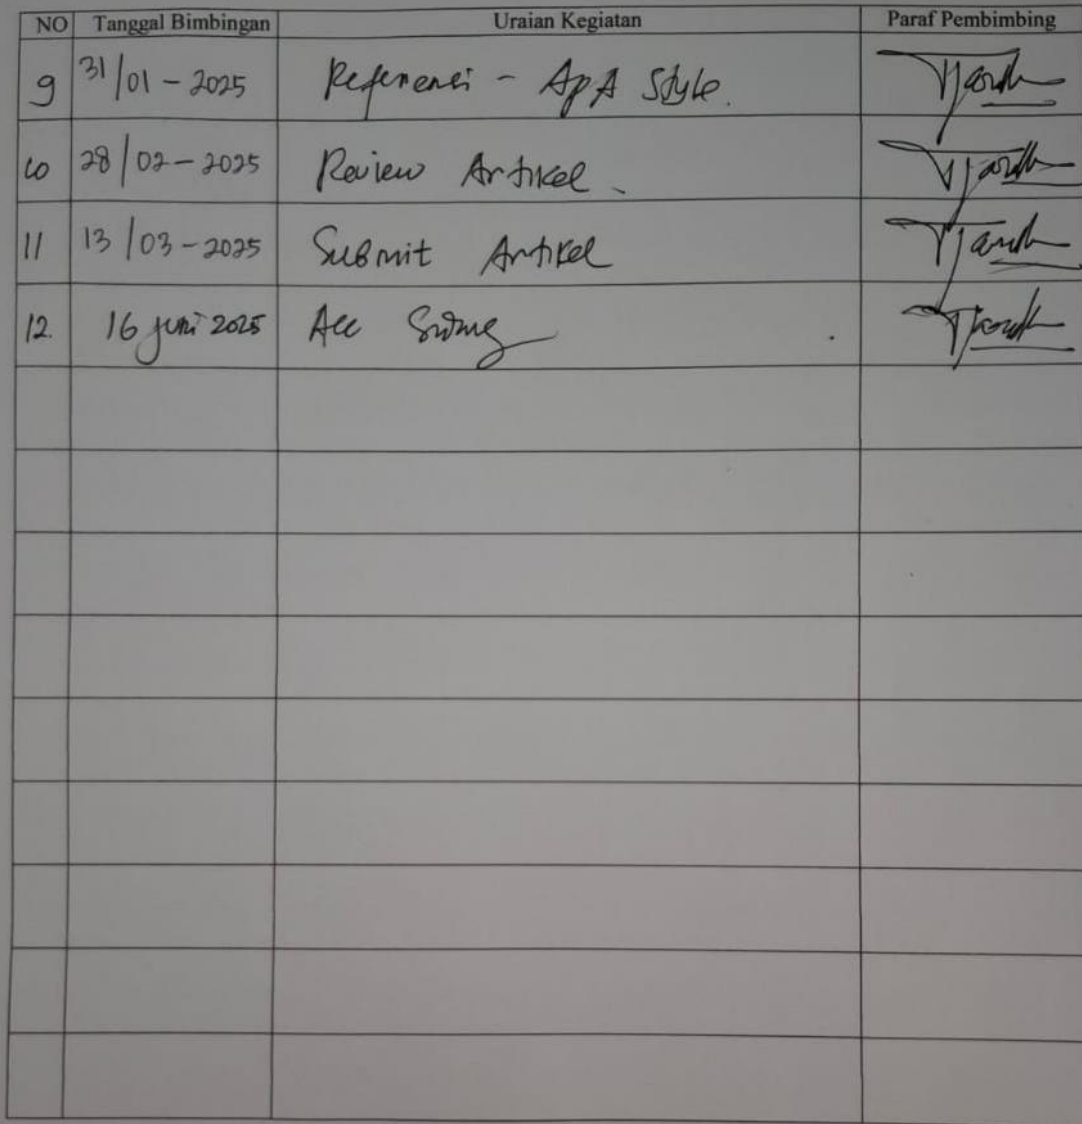 NO Tanggal Bimbingan Uraian Kegiatan Paraf Pembimbing
9 31/01-2025 Referensi - APA Style.
10 28/02-2025 Review Artikel.
11 13/03-2025 Submit Artikel
12. 16 Juni 2025 Acc Sidang